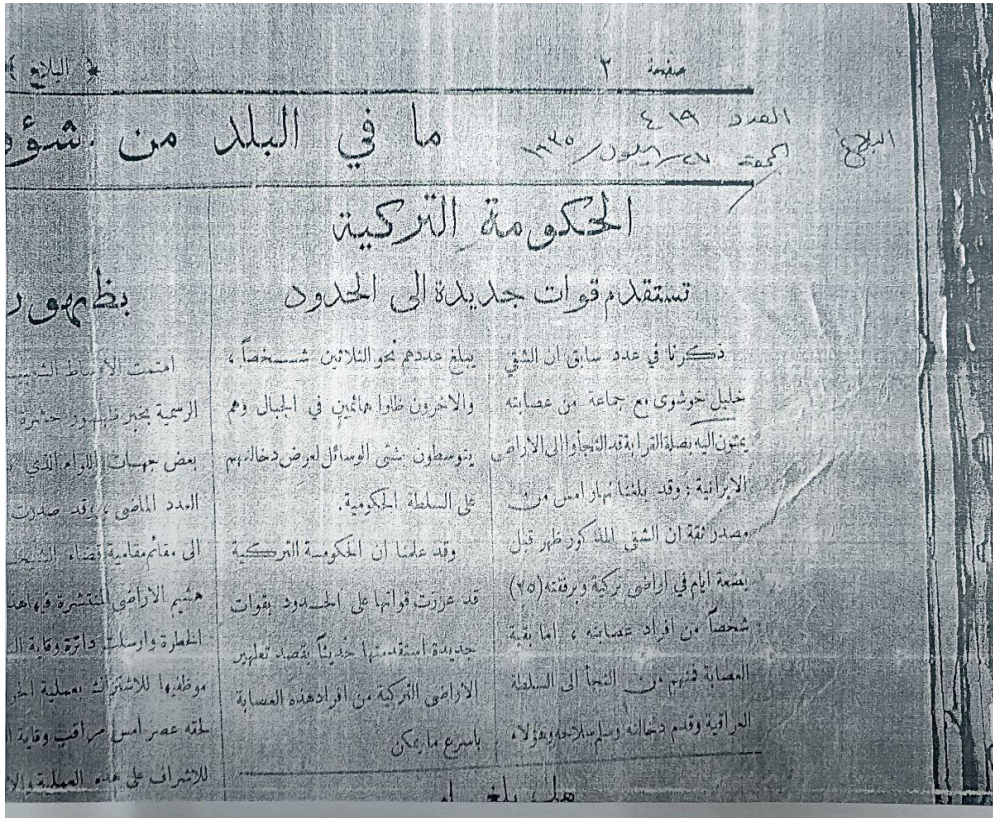 صفحة ٢
﴿ البلاغ ﴾
البلاغ
العدد ٤١٩
الجمعة ٢٧/ايلول/١٩٣٥
ما في البلد من شؤو
الحكومة التركية
تستقدم قوات جديدة الى الحدود
ذكرنا في عدد سابق ان الشقي
خليل خوشوى مع جماعة من عصابته
يمتون اليه بصلة القرابة قد التجأوا الى الاراضى
الايرانية ؛ وقد بلغنا نهار امس من
مصدر ثقة ان الشقى المذكور ظهر قبل
بضعة ايام في اراضى تركية وبرفقته (٢٥)
شخصاً من افراد عصابته ، اما بقية
العصابة فمنهم من التجأ الى السلطة
العراقية وقدم دخالته وسلم سلاحه وهؤلاء
يبلغ عددهم نحو الثلاثين شخصاً ،
والاخرون ظلوا هائمين في الجبال وهم
يتوسطون بشتى الوسائل لعرض دخالتهم
على السلطة الحكومية.
وقد علمنا ان الحكومة التركية
قد عززت قواتها على الحدود بقوات
جديدة استقدمتها حديثاً بقصد تطهير
الاراضى التركية من افراد هذه العصابة
باسرع ما يمكن
بظهور
اهتمت الاوساط
الرسمية بخبر ظهور حشرة
بعض جهات اللواء الذي
العدد الماضى ، وقد صدرت
الى مقائمقامية قضاء
الاراضى المنتشرة فيها
الخطرة وارسلت دائرة وقاية
موظفيها للاشتراك بعملية
عصر أمس مراقب وقاية
للاشراف على هذه العملية
هل بلغ